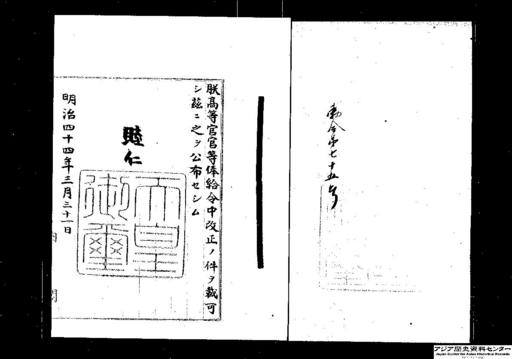 勅令第七十五号
朕高等官官等俸給令中改正ノ件ヲ裁可
シ茲ニ之ヲ公布セシム
睦仁
天皇御璽
明治四十四年三月三十一日
内閣
アジア歴史資料センター
Japan Center for Asian Historical Records